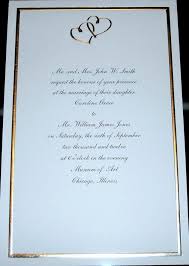 Mr. and Mrs. John W. Smith
request the honour of your presence
at the marriage of their daughter
Caroline
to
Mr. William James Jones
on Saturday, the sixth of September
two thousand and twelve
at 6 o'clock in the evening
Museum of Art
Chicago, Illinois